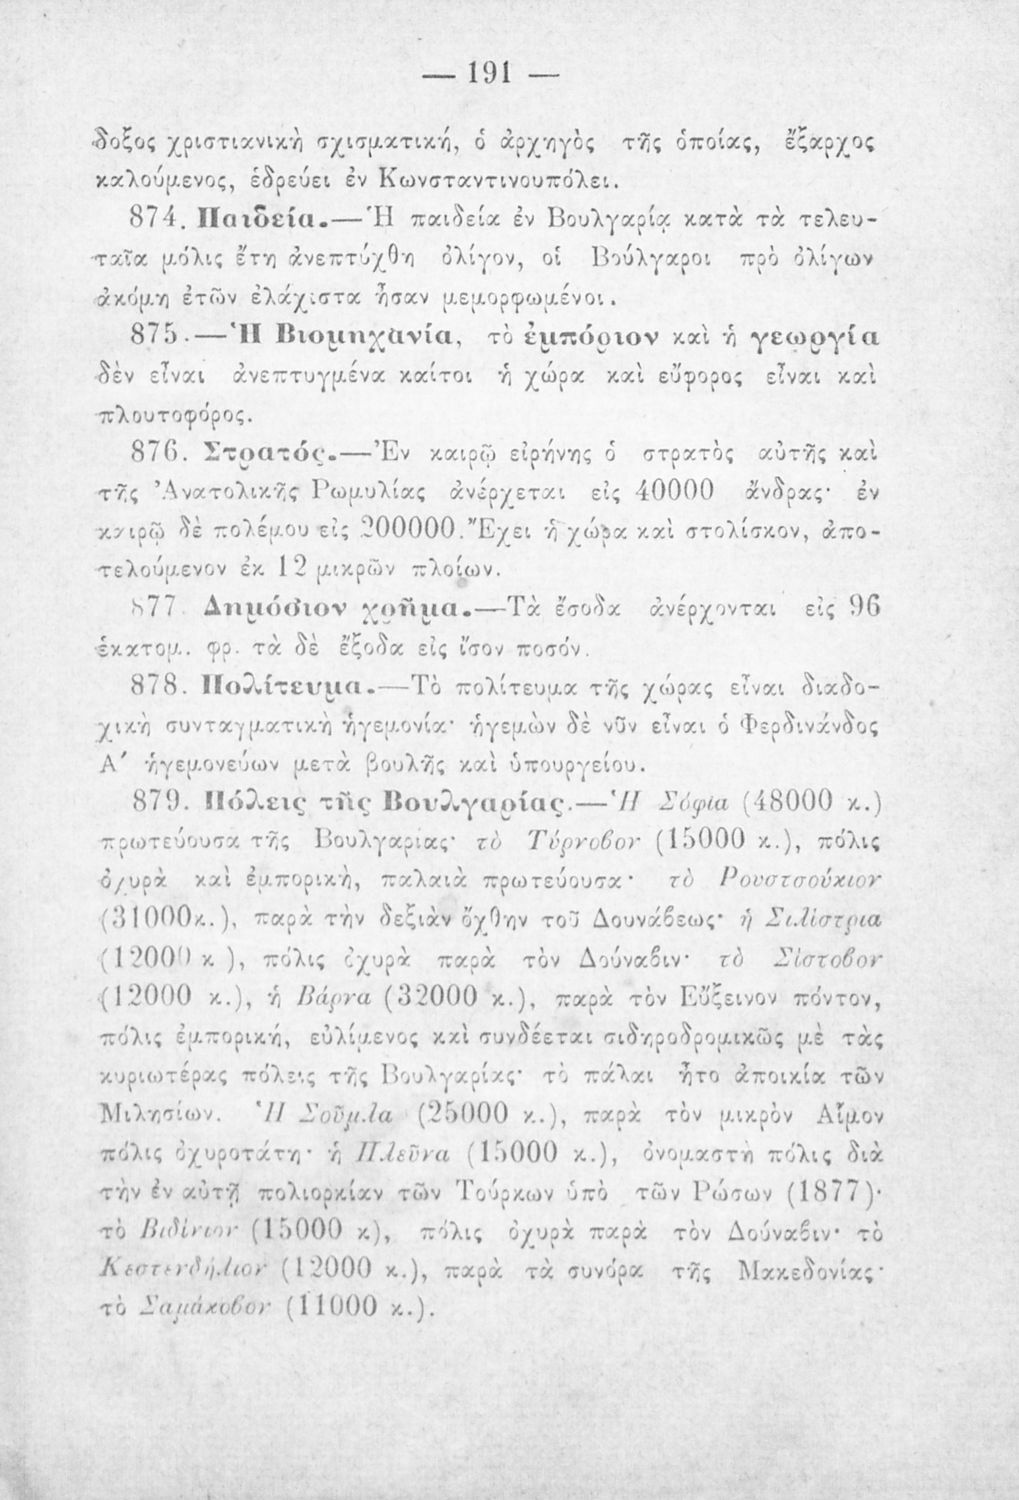 — 191 —
δοξος χριστιανικὴ σχισματική, ὁ ἀρχηγὸς τῆς ὁποίας, ἔξαρχος
καλούμενος, ἑδρεύει ἐν Κωνσταντινουπόλει.
874. Παιδεία.—Ἡ παιδεία ἐν Βουλγαρίᾳ κατὰ τὰ τελευ-
ταῖα μόλις ἔτη ἀνεπτύχθη ὀλίγον, οἱ Βούλγαροι πρὸ ὀλίγων
ἀκόμη ἐτῶν ἐλάχιστα ἦσαν μεμορφωμένοι.
875.—Ἡ Βιομηχανία, τὸ ἐμπόριον καὶ ἡ γεωργία
δὲν εἶναι ἀνεπτυγμένα καίτοι ἡ χώρα καὶ εὔφορος εἶναι καὶ
πλουτοφόρος.
876. Στρατός.—Ἐν καιρῷ εἰρήνης ὁ στρατὸς αὐτῆς καὶ
τῆς Ἀνατολικῆς Ρωμυλίας ἀνέρχεται εἰς 40000 ἄνδρας· ἐν
καιρῷ δὲ πολέμου εἰς 200000. Ἔχει ἡ χώρα καὶ στολίσκον, ἀπο-
τελούμενον ἐκ 12 μικρῶν πλοίων.
877 Δημόσιον χρῆμα.—Τὰ ἔσοδα ἀνέρχονται εἰς 96
ἑκατομ. φρ. τὰ δὲ ἔξοδα εἰς ἴσον ποσόν.
878. Πολίτευμα.—Τὸ πολίτευμα τῆς χώρας εἶναι διαδο-
χικὴ συνταγματικὴ ἡγεμονία· ἡγεμὼν δὲ νῦν εἶναι ὁ Φερδινάνδος
Α΄ ἡγεμονεύων μετὰ βουλῆς καὶ ὑπουργείου.
879. Πόλεις τῆς Βουλγαρίας.—Ἡ Σόφια (48000 κ.)
πρωτεύουσα τῆς Βουλγαρίας· τὸ Τύρνοβον (15000 κ.), πόλις
ὀχυρὰ καὶ ἐμπορικὴ, παλαιὰ πρωτεύουσα· τὸ Ρουστσούκιον
(31000κ.), παρὰ τὴν δεξιὰν ὄχθην τοῦ Δουνάβεως· ἡ Σιλίστρια
(12000 κ ), πόλις ὀχυρὰ παρὰ τὸν Δούναβιν· τὸ Σίστοβον
(12000 κ.), ἡ Βάρνα (32000 κ.), παρὰ τὸν Εὔξεινον πόντον,
πόλις ἐμπορική, εὐλίμενος καὶ συνδέεται σιδηροδρομικῶς μὲ τὰς
κυριωτέρας πόλεις τῆς Βουλγαρίας· τὸ πάλαι ἦτο ἀποικία τῶν
Μιλησίων. Ἡ Σοῦμλα (25000 κ.), παρὰ τὸν μικρὸν Αἷμον
πόλις ὀχυροτάτη· ἡ Πλεῦνα (15000 κ.), ὀνομαστὴ πόλις διὰ
τὴν ἐν αὐτῇ πολιορκίαν τῶν Τούρκων ὑπὸ τῶν Ρώσων (1877)·
τὸ Βιδίνιον (15000 κ), πόλις ὀχυρὰ παρὰ τὸν Δούναβιν· τὸ
Κεστενδήλιον (12000 κ.), παρὰ τὰ συνόρα τῆς Μακεδονίας·
τὸ Σαμάκοβον (11000 κ.).